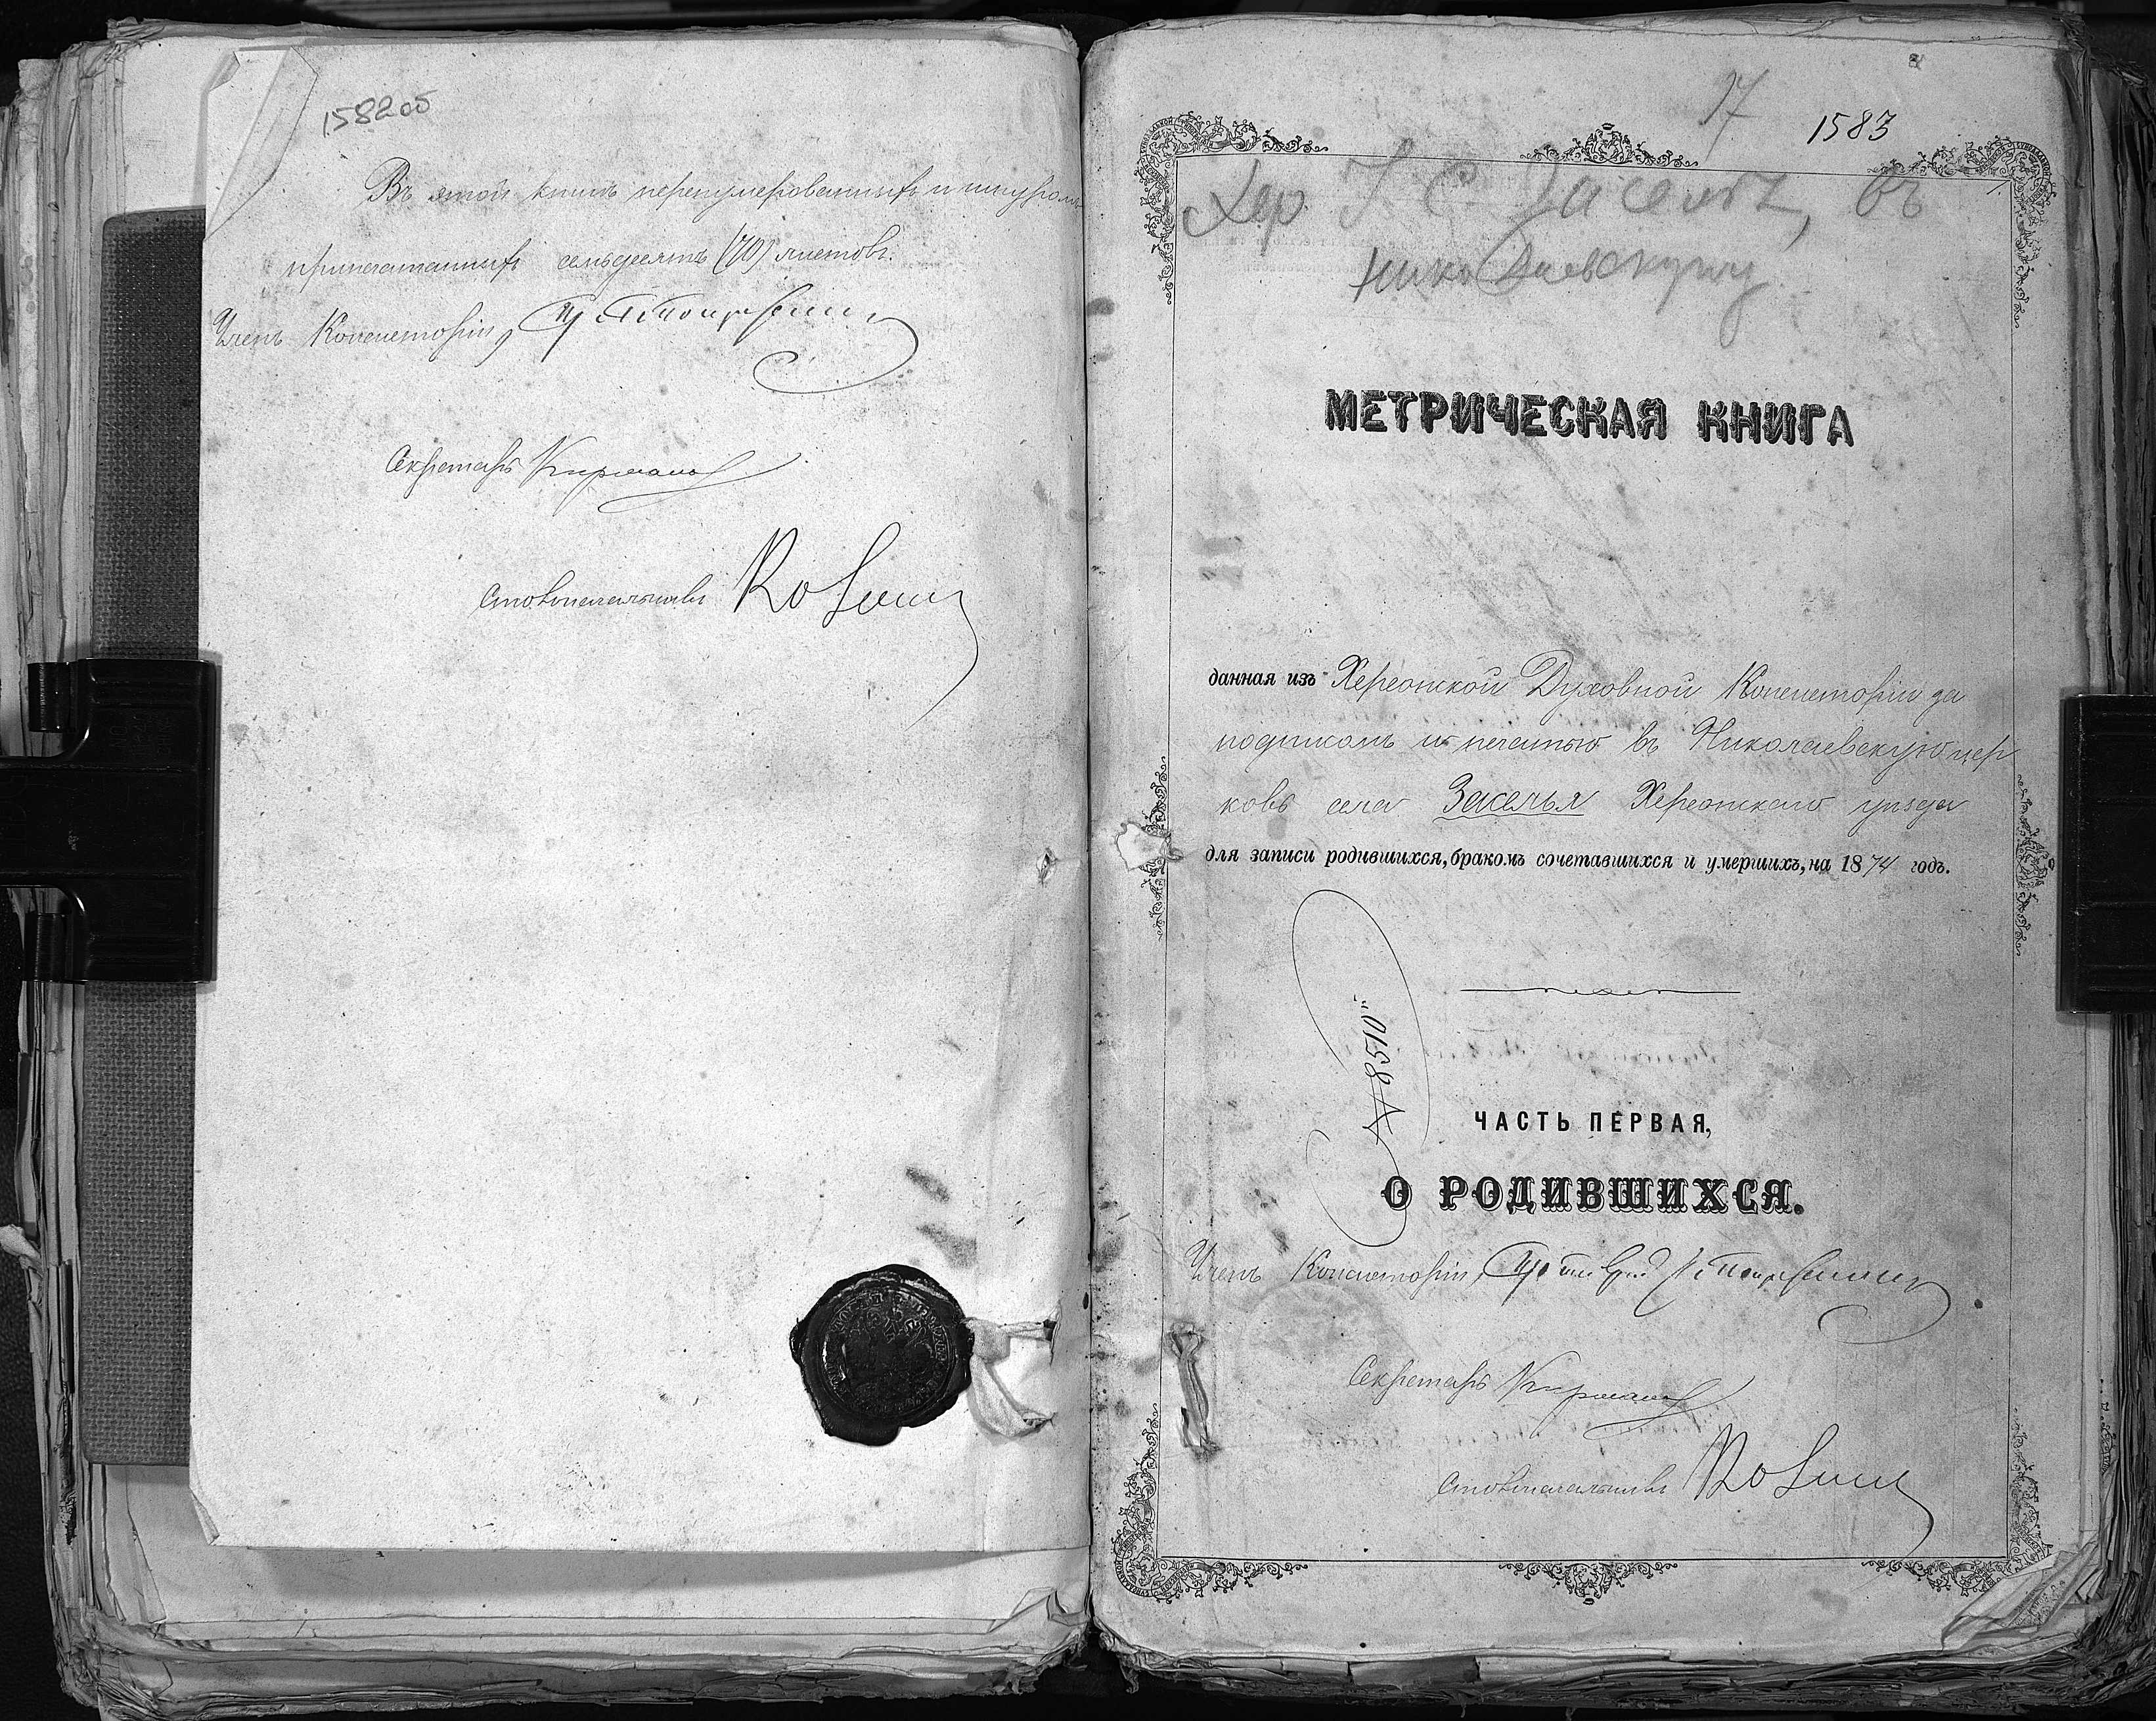 1582об
Въ этой книгѣ перенумерованныхъ и шнуромъ
припечатанныхъ семьдесятъ (70) листовъ.
Членъ Консисторіи,
Секретарь
Столоначальникъ
17
1583
Хер У. С. Заселье, въ
Николаевскую
МЕТРИЧЕСКАЯ КНИГА
данная изъ Херсонской Духовной Консисторіи за
подписомъ и печатью въ Николаевскую цер
ковь села Заселья Херсонскаго уѣзда
для записи родившихся, бракомъ сочетавшихся и умершихъ, на 1874 годъ.
№ 8510
ЧАСТЬ ПЕРВАЯ,
О РОДИВШИХСЯ.
Членъ Консисторіи, Протоіерей
Секретарь
Столоначальникъ